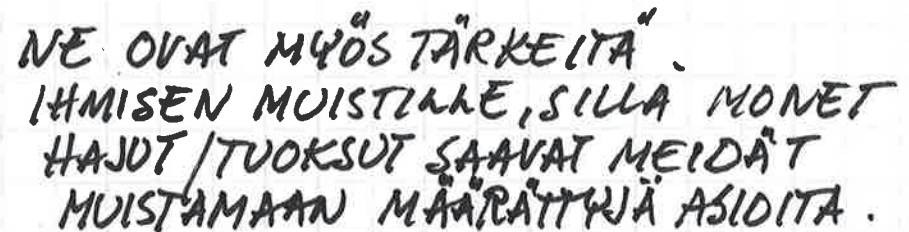 NE OVAT MYÖS TÄRKEITÄ.
IHMISEN MUISTILLE, SILLÄ MONET
HAJUT / TUOKSUT SAAVAT MEIDÄT
MUISTAMAAN MÄÄRÄTTYJÄ ASIOITA.